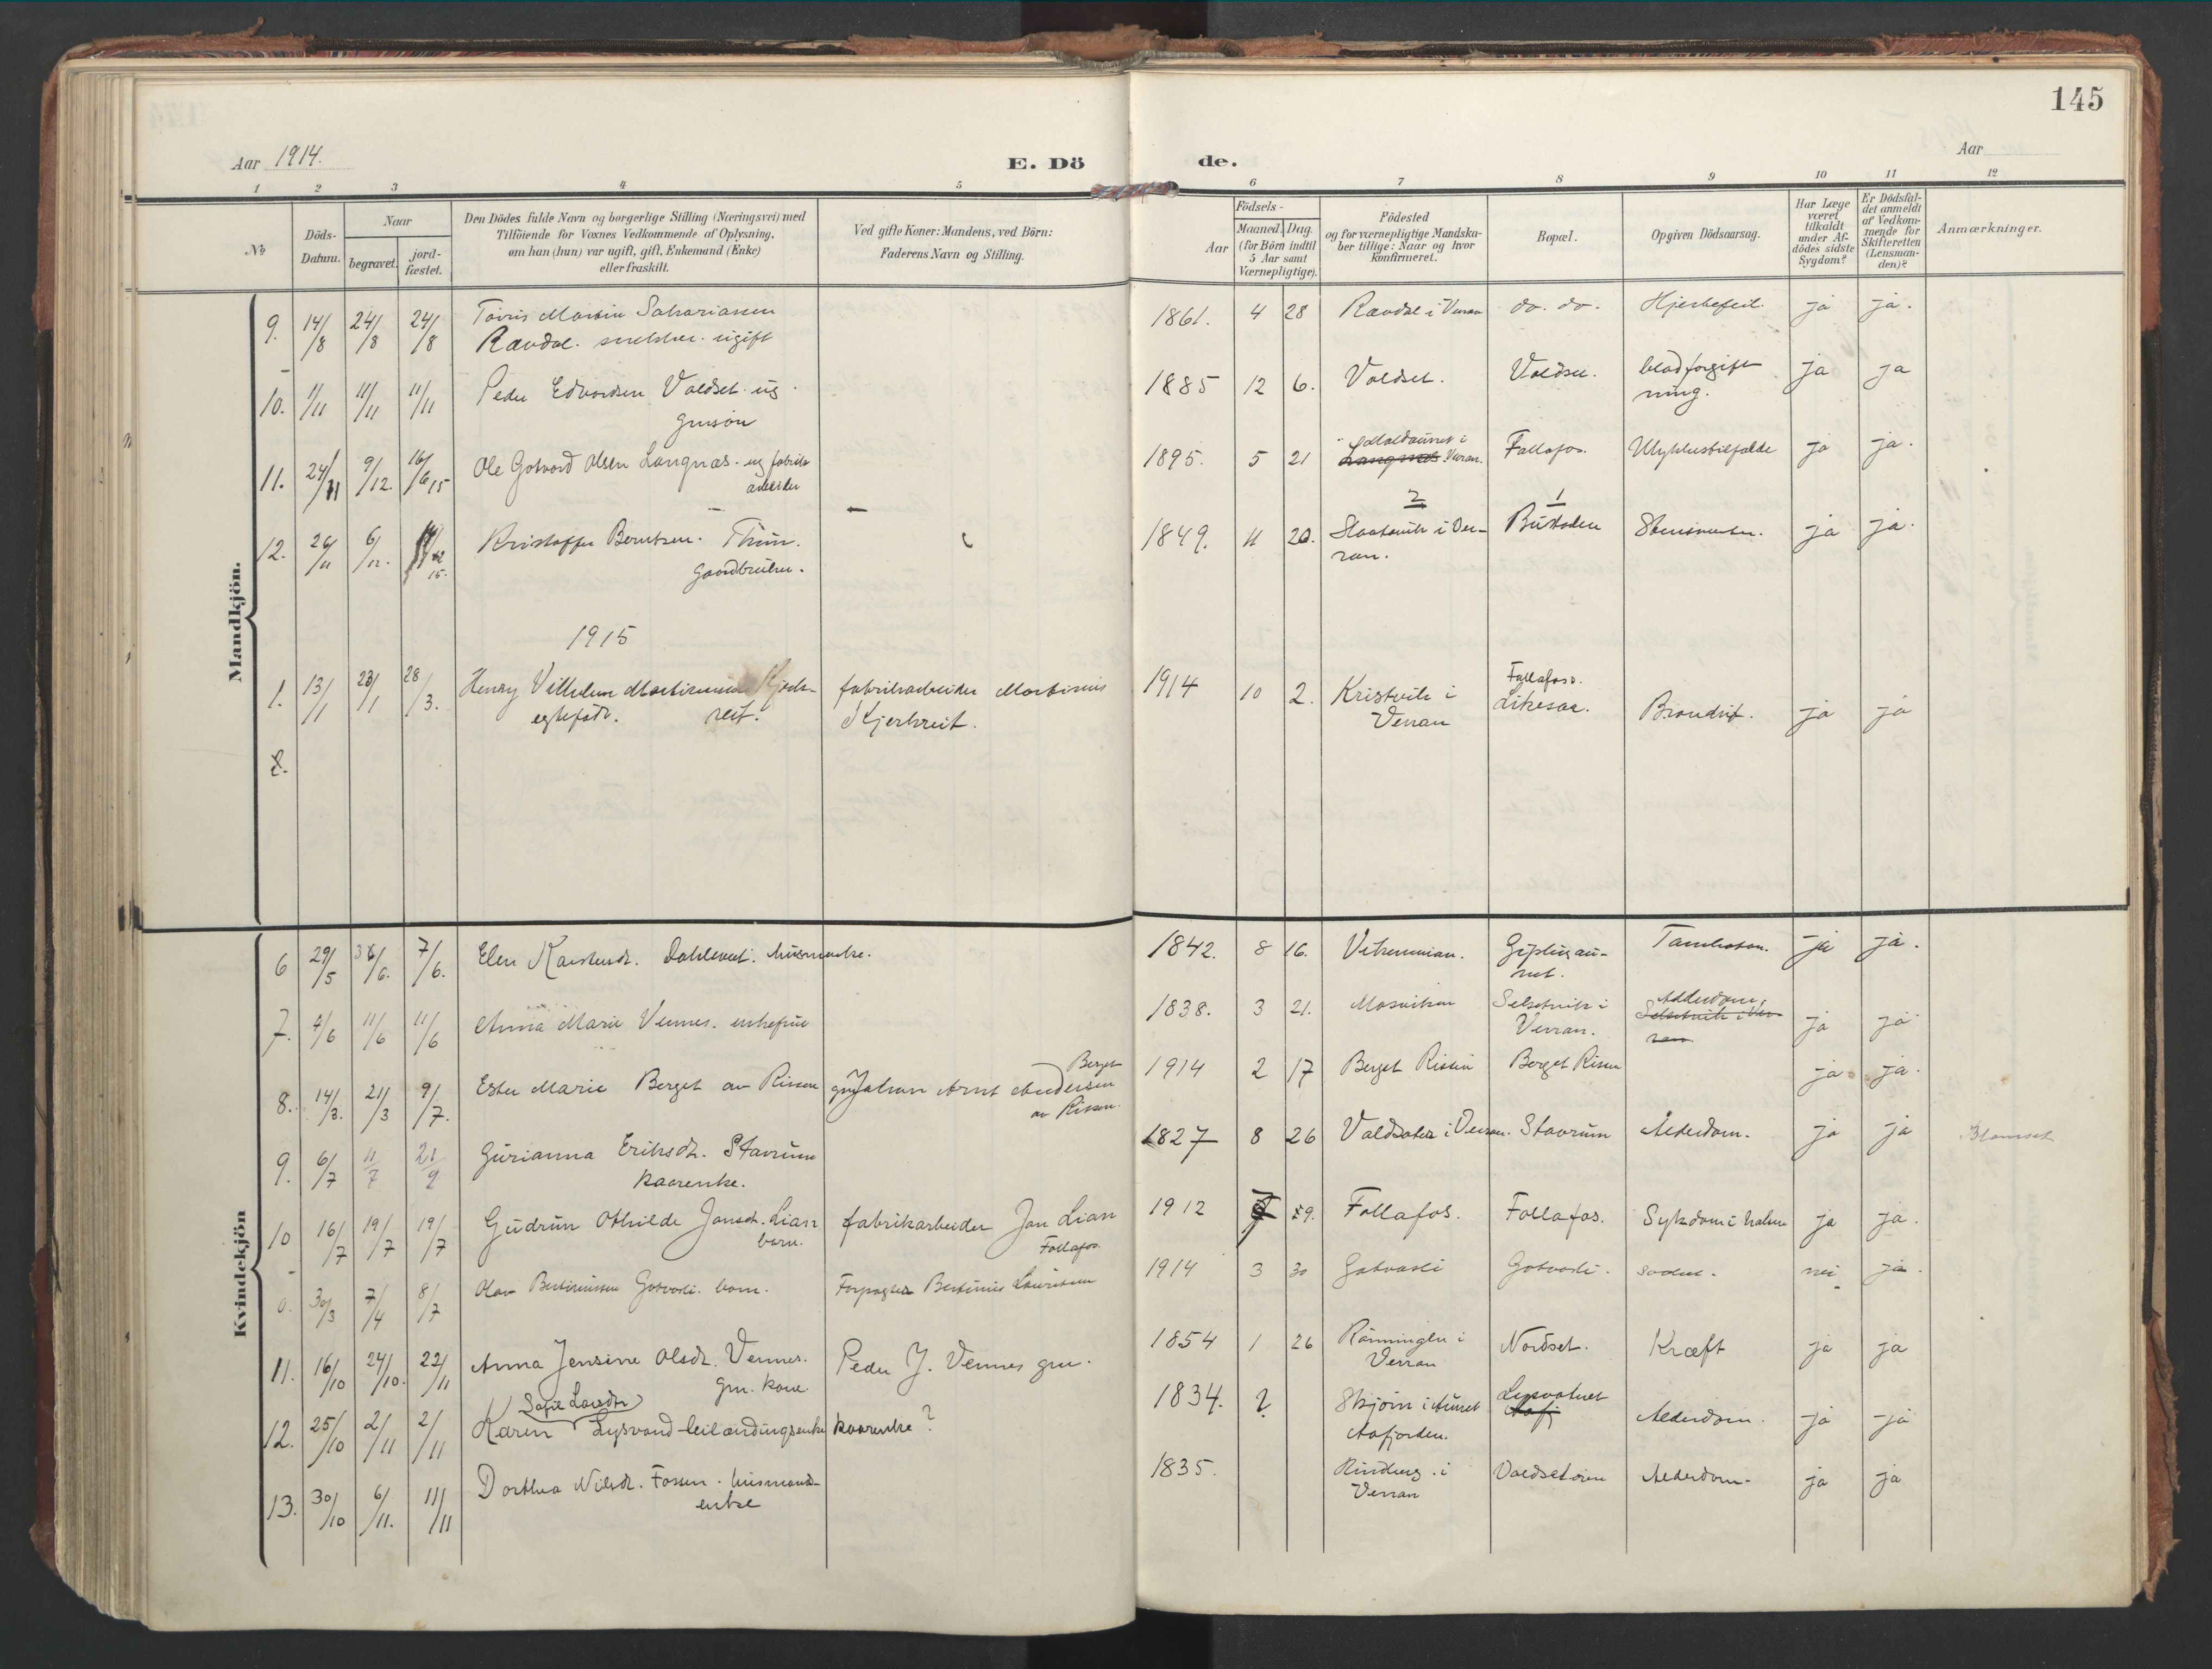 145
Aar 1914.
E. Dö
de.
Aar
1 2 3 4 5 6 7 8 9 10 11 12
No
Döds-Datum.
Naar
begravet.
jord-fæstet.
Den Dödes fulde Navn og borgerlige Stilling (Næringsvei) med
Tilföiende for Voxnes Vedkommende af Oplysning,
om han (hun) var ugift, gift, Enkemand (Enke)
eller fraskilt.
Ved gifte Koner: Mandens, ved Börn:
Faderens Navn og Stilling.
Födsels-
Aar
Maaned. Dag.
(for Börn indtil
5 Aar samt
Værnepligtige).
Födested
og for værnepligtige Mandska-
ber tillige: Naar og hvor
konfirmeret.
Bopæl.
Opgiven Dödsaarsag.
Har Læge
været
tilkaldt
under Af-
dödes sidste
Sygdom?
Er Dödsfal-
det anmeldt
af Vedkom-
mende for
Skifteretten
(Lensman-
den)?
Anmærkninger.
Mandkjön.
9. 14/8 24/8 24/8 Martin Sakariassen 1861. 4 28 i Verran do. do. Hjertefeil ja ja.
snekker. ugift
10. 1/11 11/11 11/11 Peder Edvardsen Valdset. ug. 1885 12 6. Valdset. Valdset. blodforgift ja ja
gmsøn ning.
11. 24/11 9/12. 16/6 15 Ole Gotvard Olsen Langnæs. ug fabrik 1895. 5 21 Langnes Verran. Follafos. Ulykkestilfælde ja ja.
arbeider
2 1
12. 26/11 6/12. 15. Kristoffer Berntsen. Thun. 1849. 11 20. i Ver- ja ja.
gaardbruker. ran.
1915
1. 13/1 23/1 28/3. Henry Vilhelm fabrikarbeider Martinius 1914 10 2. Kristvik i Follafoss. ja ja
egtefødt. reit. Skjerkreit. Verran
2.
Kvindekjön
6 29/5 6/6. 7/6. Elen Karstensdt. husmenke. 1842. 8 16. ja ja.
7. 4/6 11/6 11/6 Anna Marie Vennes. enkefrue 1838. 3 21. Mosviken Selsetvik i Alderdom, ja ja
Verran. Selsetvik i Ver-
ran
Berget
8. 14/3. 21/3 9/7. Ester Marie Berget av Rissen gm Johan Arnt Andersen 1914 2 17 Berget Rissen Berget Rissen ja ja.
av Rissen.
9. 6/7 11/7 21/9 Gurianna Eriksdt. Stavrum 1827 8 26 i Verran. Stavrum Alderdom. ja ja
kaarenke.
10 16/7 19/7 19/7 Gudrun Othilde Jansdt. Lian fabrikarbeider Jan Lian 1912 7 29. Follafos. Follafos. Sykdom i halsen ja ja.
barn. Follafos.
0. 30/3 7/4 8/7 Olav Bertinussen Gotvasli. barn. Forpagter Bertinus Lauritsen 1914 3 30 Gotvasli Gotvasli. nei ja.
11. 16/10 24/10. 22/11 Anna Jensine Olsdt. Vennes. Peder J. Vennes gm. 1854 1 26 i Nordset. Kræft ja ja
gm. kone Verran
12. 25/10 2/11 2/11 Karen Lysvand leilændingsenke kaarenke? 1834. ? Skjørin i Aunet Lysvatnet Alderdom. ja ja
Aafjorden. Aafj
13. 30/10 6/11. 11/11 Dorthea Nilsdt. Fossen. husmands- 1835. i Valdsetøren Alderdom. ja ja
enke Verran